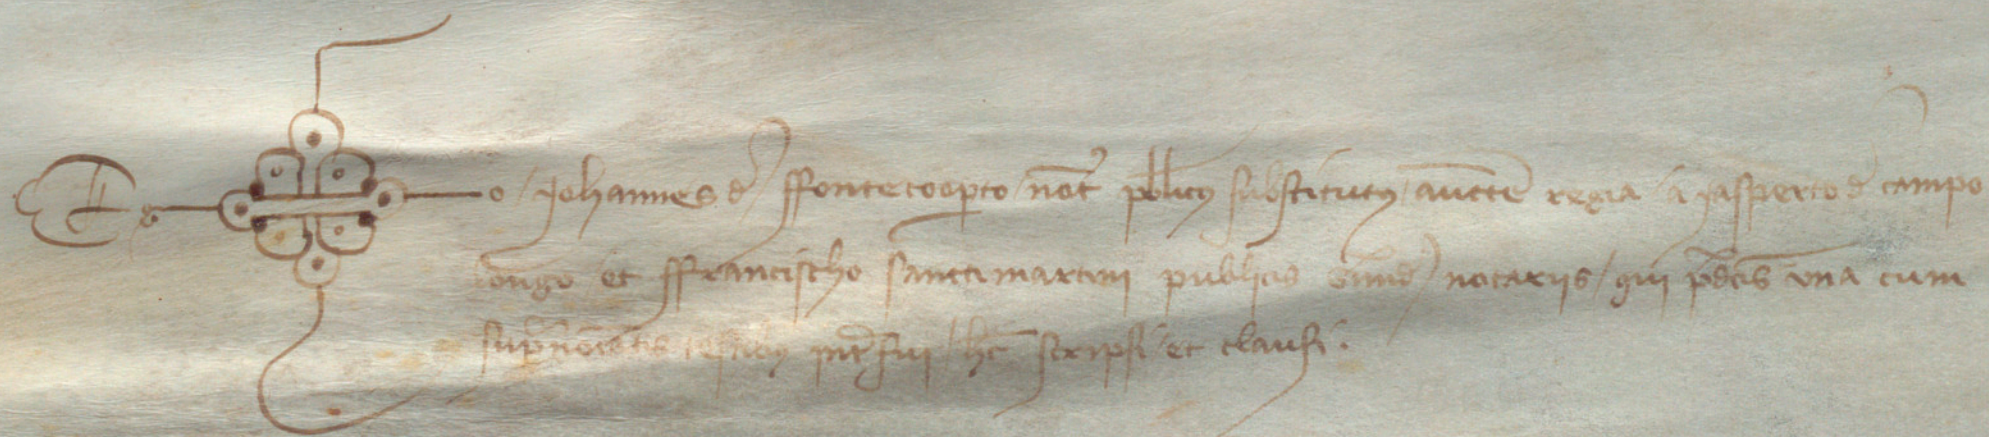 Ego Johannes d' ffontecoopto not' publicus substitutus auctte regia a Jasperto d' campo
longo et ffrancischo sanctimartini publicis eiusd' notariis qui pdcis una cum
supnoiatis testibus interfui hec scripsi et clausi.